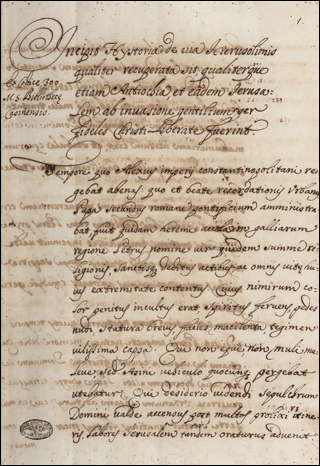 1.
Incipit Hystoria de via Hierusolimis
qualiter recuperata sit qualiterque
etiam Antiocia et eadem Jerusa-
lem ab invasione gentilium per
fideles Christi liberate fuerint.
Ex codice 300
M.S. Bibliothecę
Casinensis.
Tempore quo Alexius imperij constantinopolitani re-
gebat abenas, quo et beate recordationis Urbanus
Papa secundus romane pontificium amministra-
bat fuit quidam heremi galliarum
regione Petrus nomine vir quidem summe re-
ligionis, Sanctisq deditus actibus, ac omnis vite nu-
ius extremitate contentus Cuius nimirum co-
lor penitus incultus erat spiritus fervens, pedes
nudi, statura brevis, facies macilenta, tegimen
vilissima cappa. Qui non equi, non muli mu-
leve sed Asini vehiculo quocunq pergebat
utebatur. Qui desiderio videndi sepulchrum
Domini valde accensus, post multos prolixi itine-
ris labores Jerusalem tandem oraturus advenit